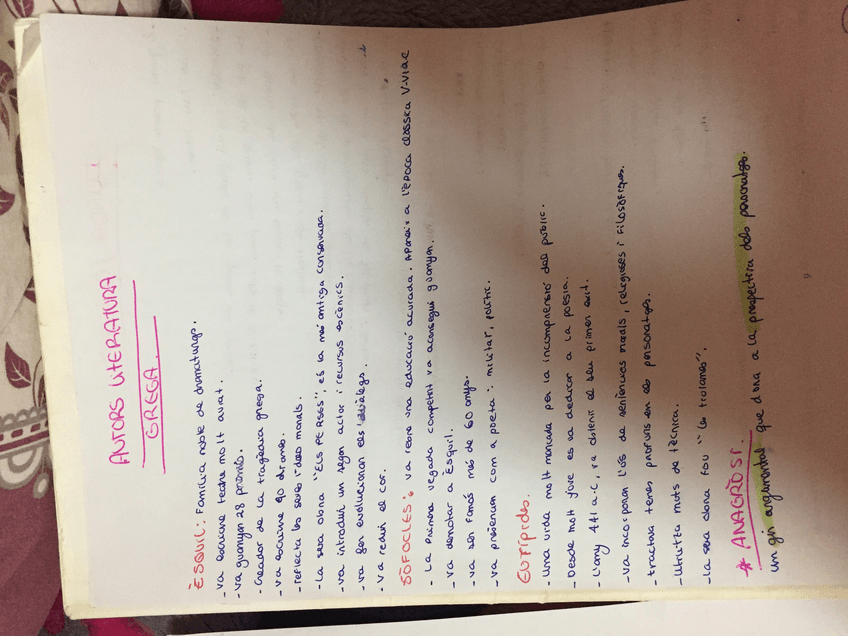 AUTORS LITERATURA
GREGA.
ÈSQUIL: Família noble de dramaturgs.
- va escriure teatre molt aviat.
- va guanyar 28 premis.
- Creador de la tragèdia grega.
- va escriure 90 drames.
- reflecta les seves idees morals.
- La seva obra "ELS PERSES", és la més antiga conservada.
- va introduir un segon actor i recursos escènics.
- va fer evolucionar els diàlegs.
- va reduir el cor.
SÒFOCLES: va rebre una educació acurada. Apareix a l'època clàssica V-IV a.C
- La primera vegada competint va aconseguir guanyar.
- va derrotar a Èsquil.
- va ser famós més de 60 anys.
- va presenciar com a poeta: militar, polític.
Eurípides.
- Una vida molt marcada per la incomprensió del públic.
- Desde molt jove es va dedicar a la poesia.
- L'any 441 a.C, va obtenir el seu primer èxit.
- Va incorporar l'ús de sentències morals, religioses i filosòfiques.
- tractava temes en els personatges.
- Utilitza mots de tècnica.
- La seva obra fou "les troianes".
* ANAGNÒSI.
un gir argumental que dona a la prespectiva dels personatges.